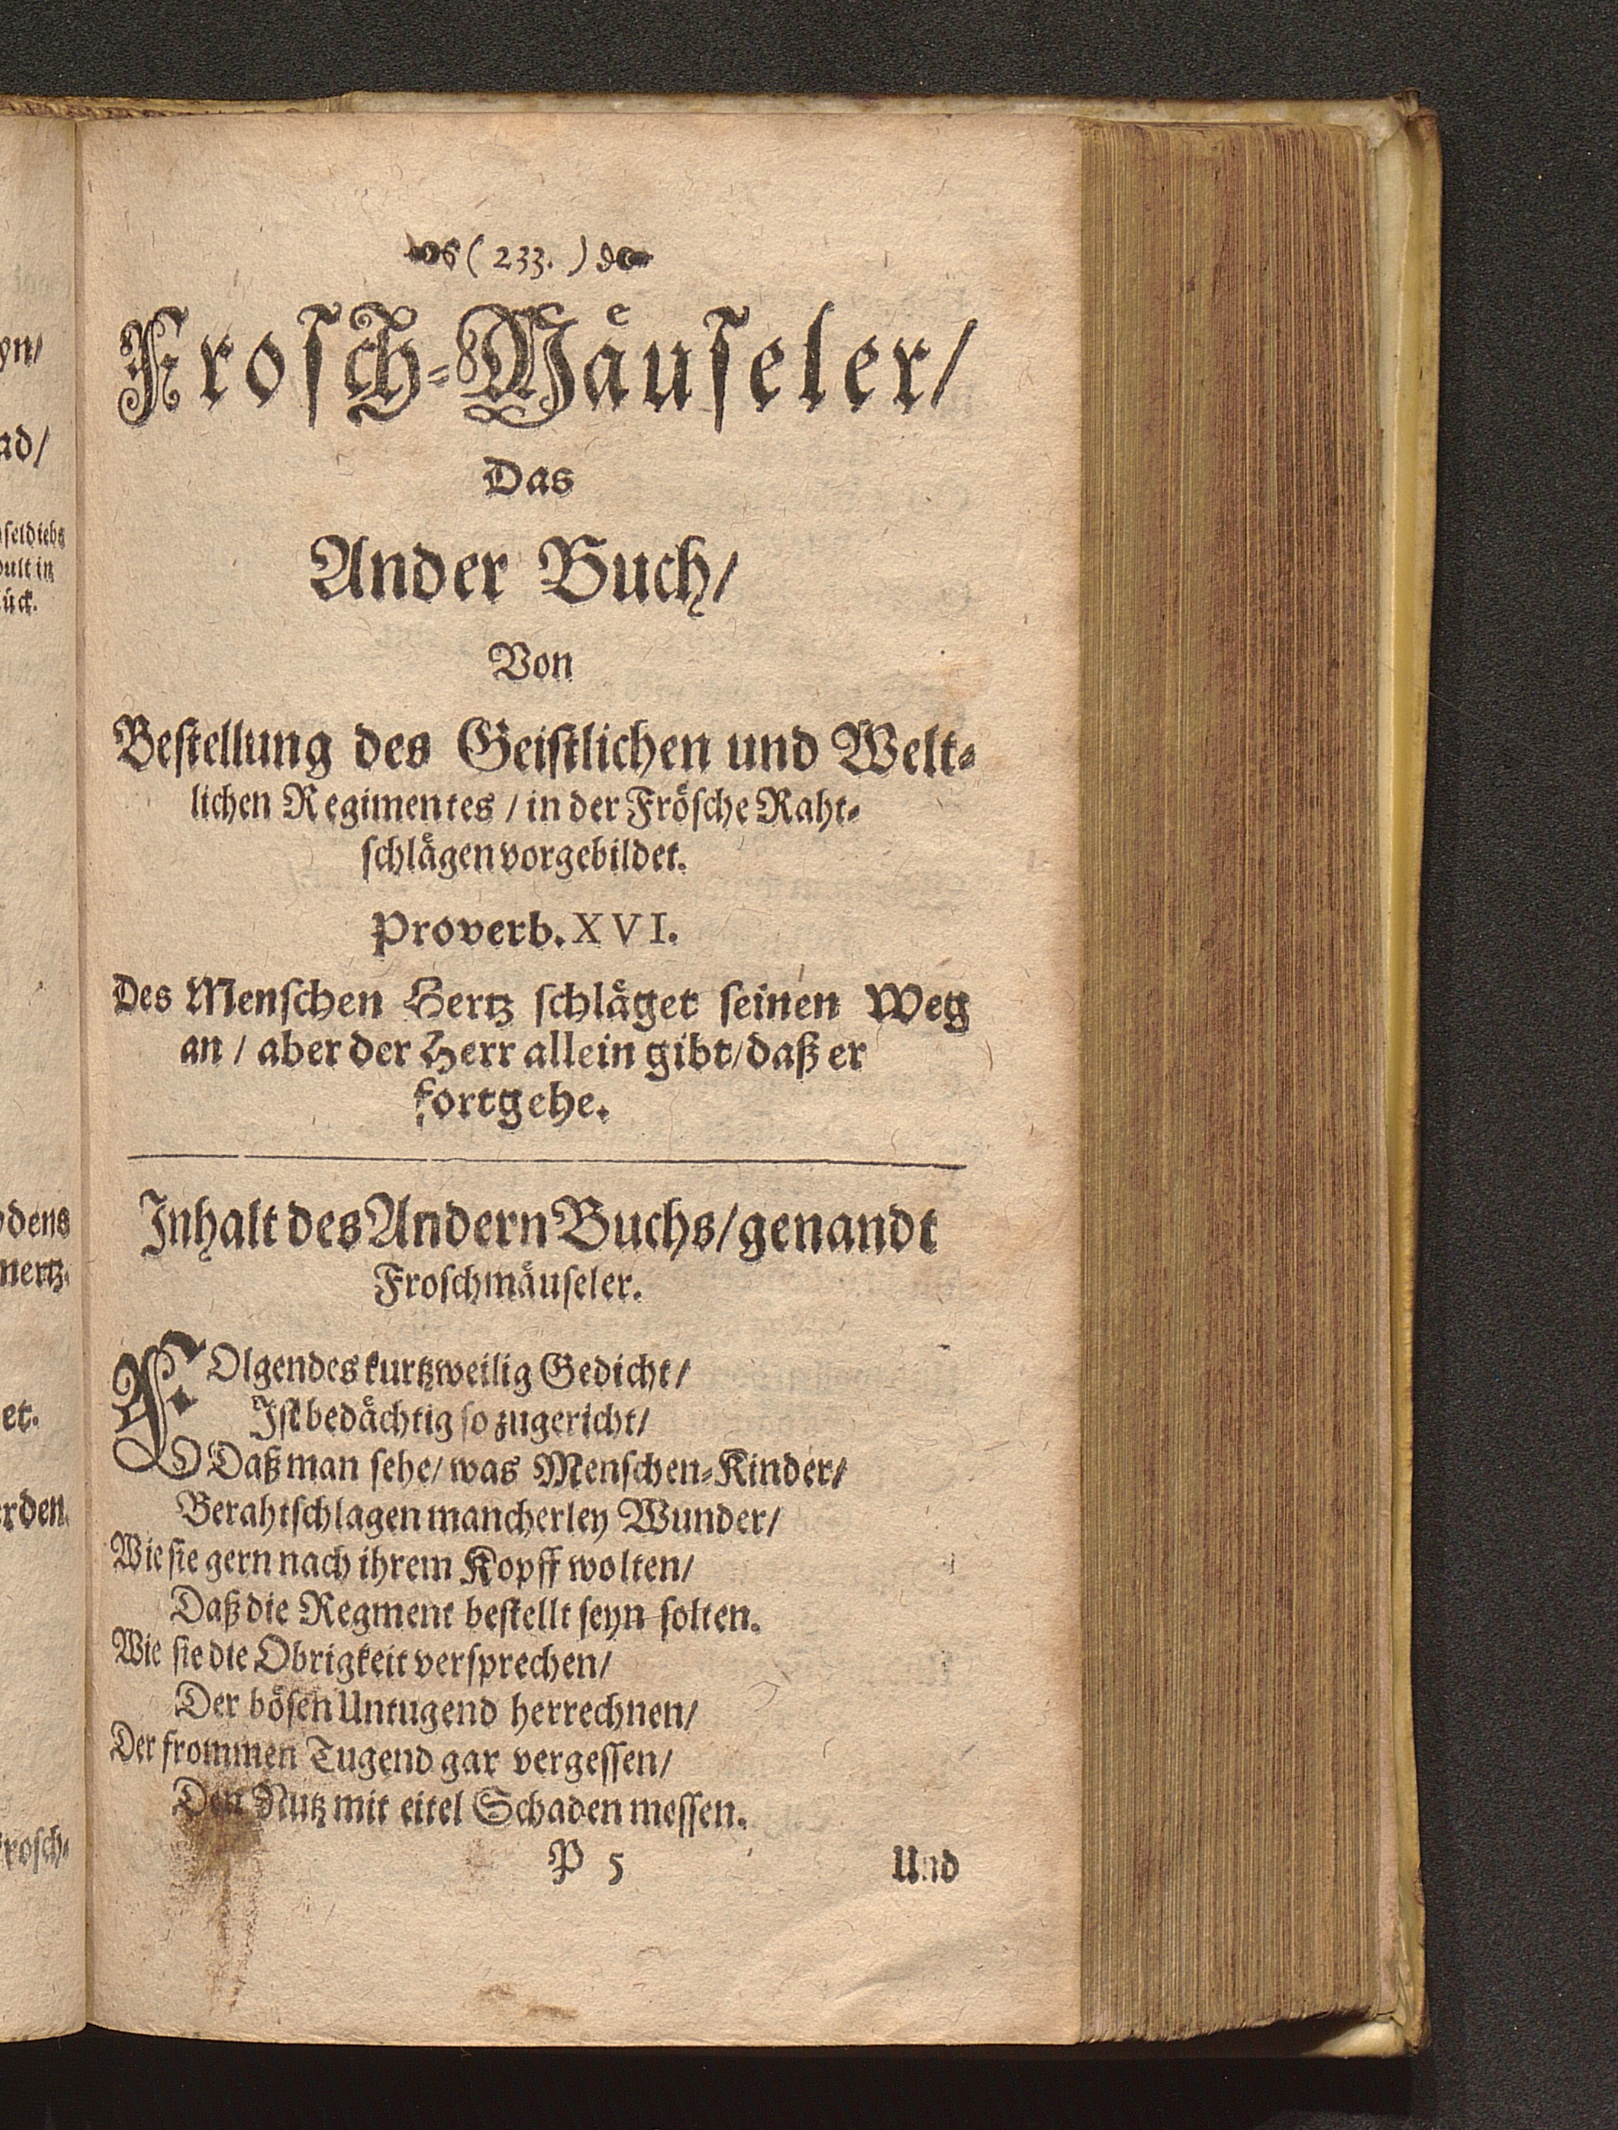 ( 233. )
Frosch-Mäuseler/
Das
Ander Buch/
Von
Bestellung des Geistlichen und Welt-
lichen Regimentes / in der Frösche Raht-
schlägen vorgebildet.
Proverb. XVI.
Des Menschen Hertz schläget seinen Weg
an / aber der Herr allein gibt/ daß er
fortgehe.
Inhalt des Andern Buchs/ genandt
Froschmäuseler.
FOlgendes kurtzweilig Gedicht/
Ist bedächtig so zugericht/
Daß man sehe/ was Menschen-Kinder/
Berahtschlagen mancherley Wunder/
Wie sie gern nach ihrem Kopff wolten/
Daß die Regment bestellt seyn solten.
Wie sie die Obrigkeit versprechen/
Der bösen Untugend herrechnen/
Der frommen Tugend gar vergessen/
Den Nutz mit eitel Schaden messen.
P 5 Und